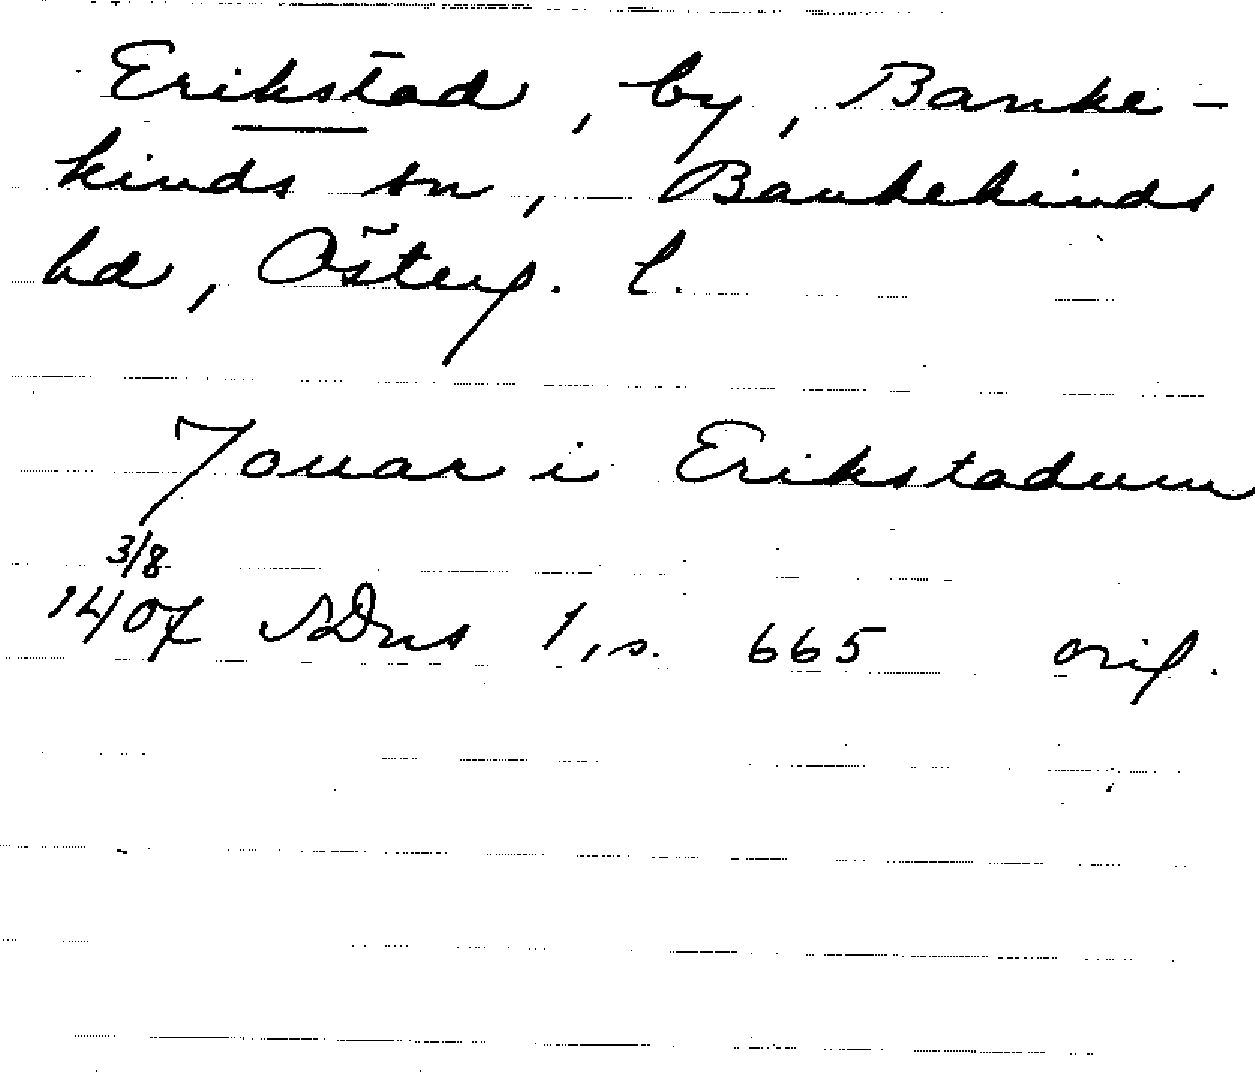 Erikstad, by, Banke-
kinds sn, Bankekinds
hd, Österg. l.
Jonar i Erikstadum
3/8
1407 SDns 1, s. 665 orig.